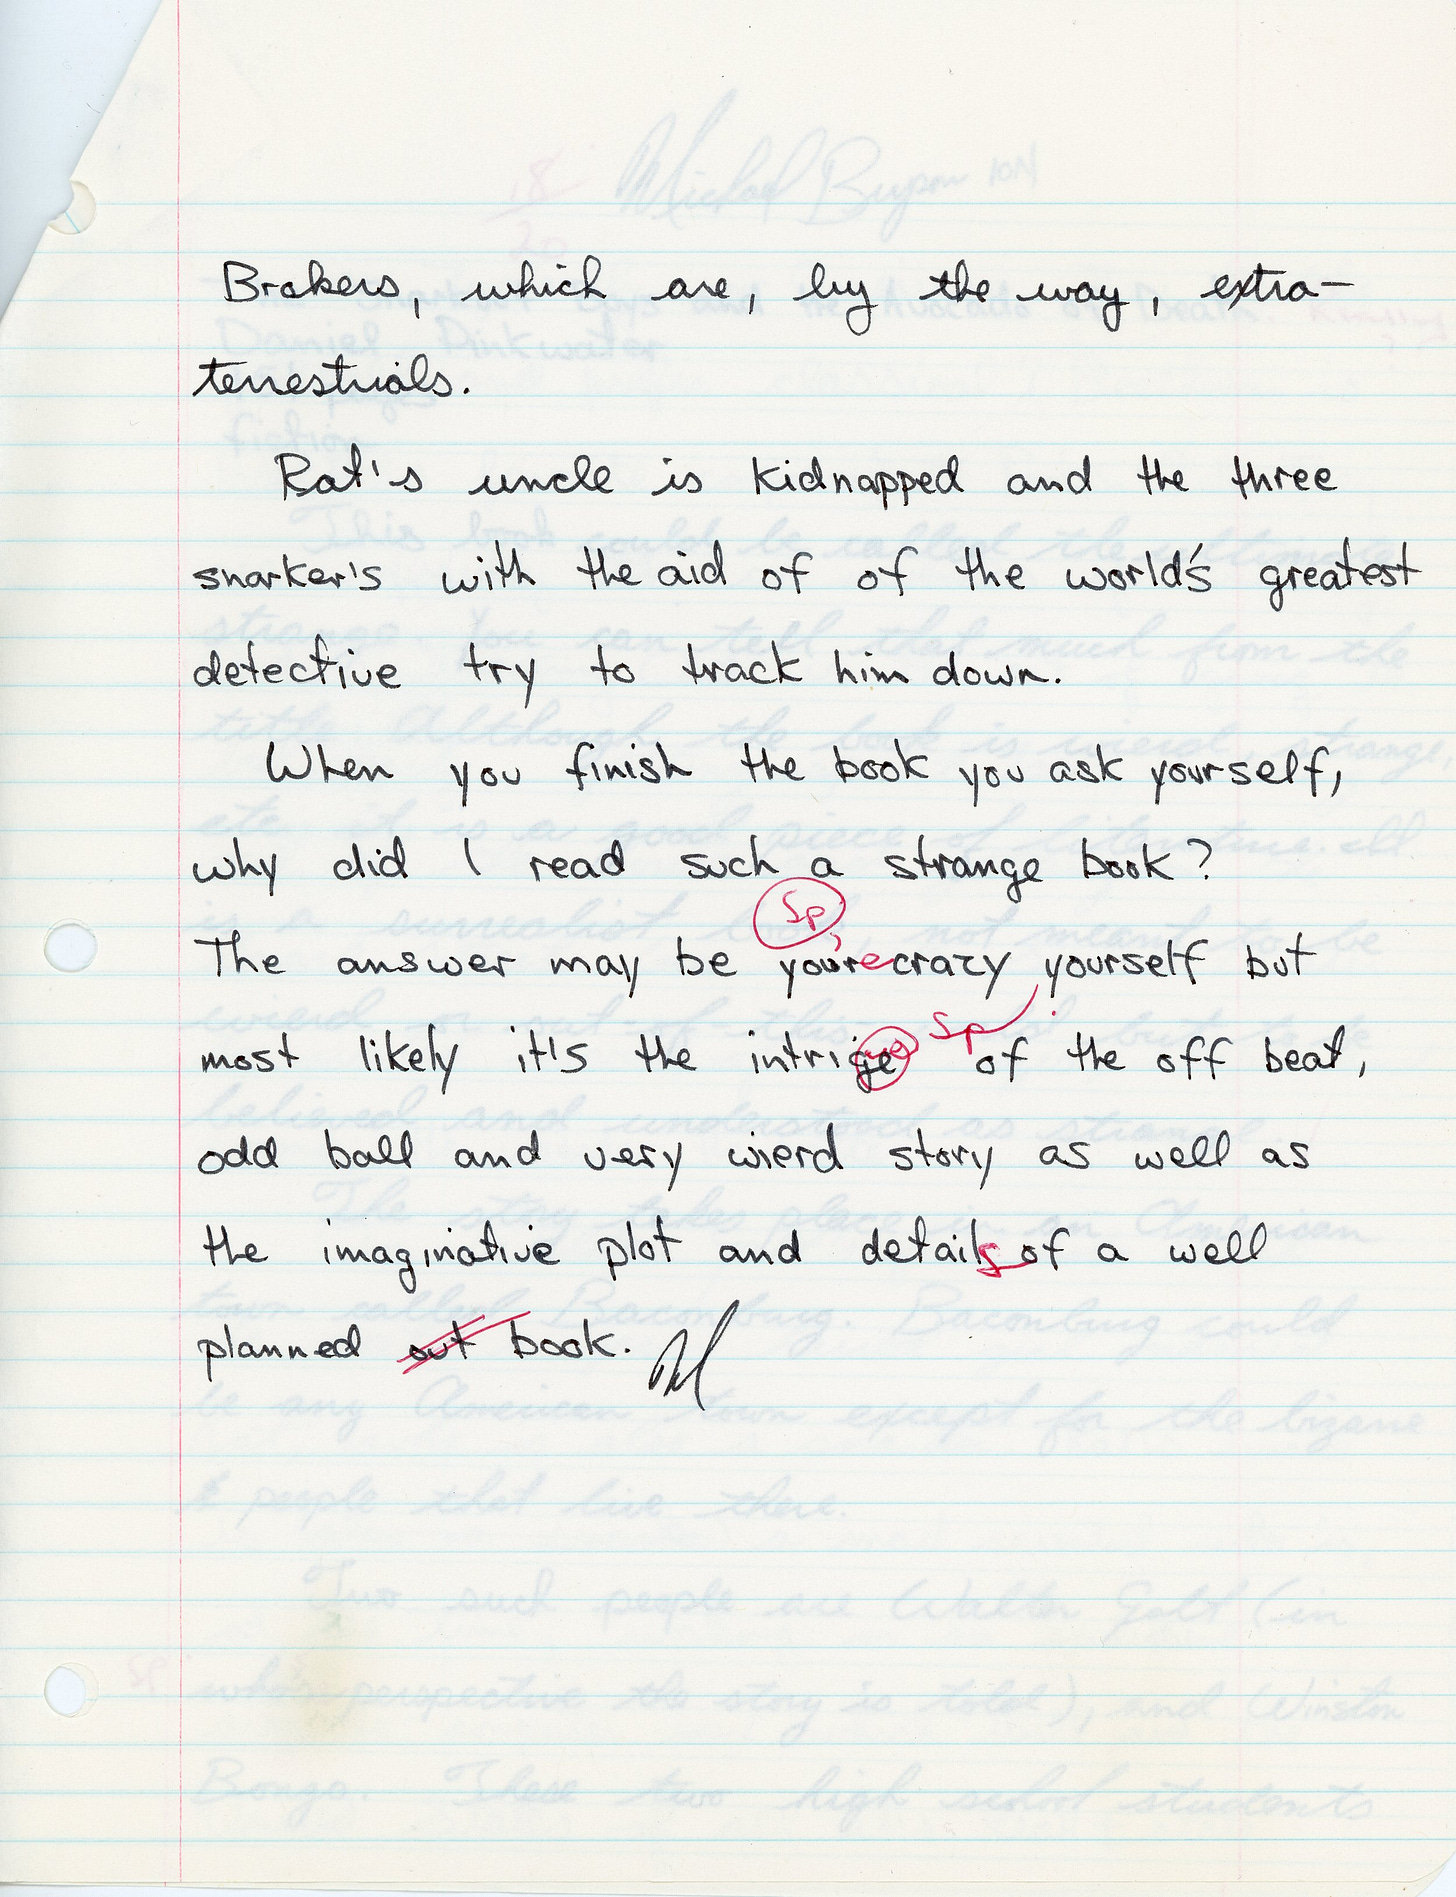 Brokers, which are, by the way, extra-
terrestrials.
Rat's uncle is kidnapped and the three
snarker's with the aid of of the world's greatest
detective try to track him down.
When you finish the book you ask yourself,
why did I read such a strange book?
Sp
The answer may be you're crazy yourself but
Sp
most likely it's the intrige of the off beat,
odd ball and very wierd story as well as
the imaginative plot and details of a well
planned out book.